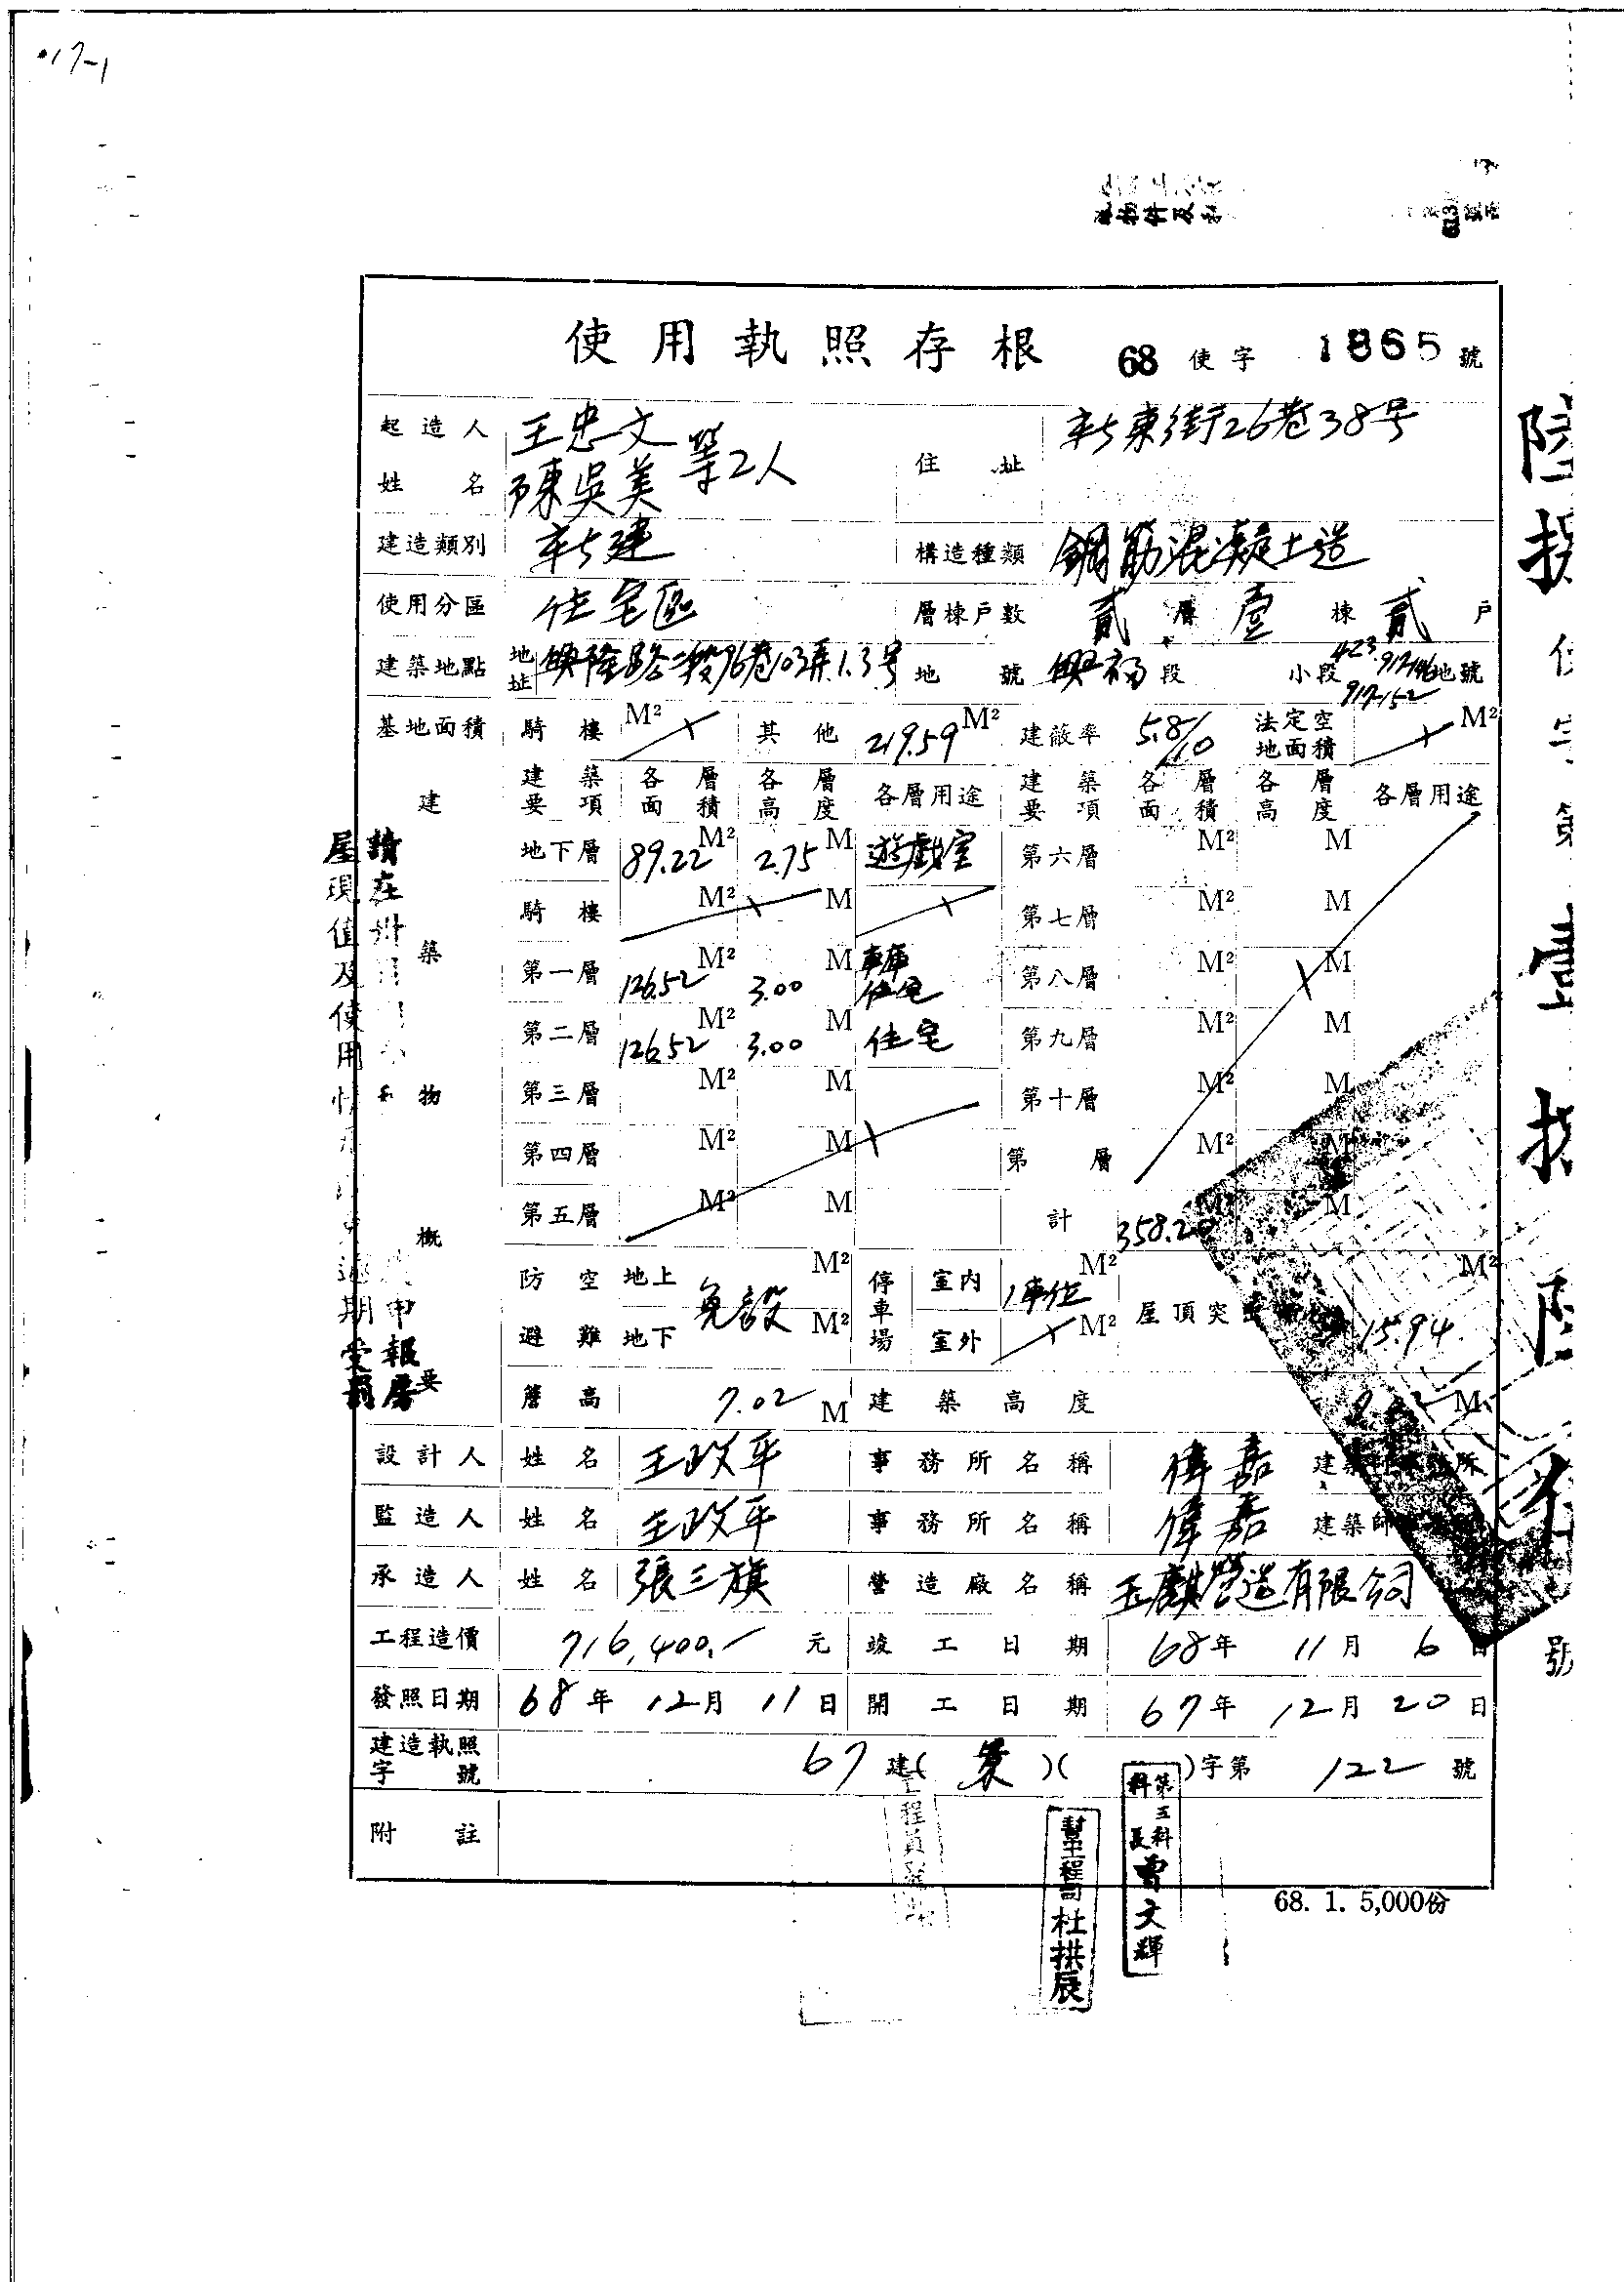 17-1
使用執照存根 68 使字 1865 號
起造人姓名 王忠文 陳吳美 等2人 住址 新東街26巷38号
建造類別 新建 構造種類 鋼筋混凝土造
使用分區 住宅區 層棟戶數 貳層壹棟貳戶
建築地點 地址 興隆路二段96巷103弄1.3号 地號 興福段 小段 423. 917-146 917-152 地號
基地面積 騎樓 M² 其他 219.59 M² 建蔽率 5.8/10 法定空地面積 M²
建築物概要
建築要項 各層面積 各層高度 各層用途 建築要項 各層面積 各層高度 各層用途
地下層 89.22 M² 2.75 M 遊戲室 第六層 M² M
騎樓 M² M 第七層 M² M
第一層 126.52 M² 3.00 M 車庫 住宅 第八層 M² M
第二層 126.52 M² 3.00 M 住宅 第九層 M² M
第三層 M² M 第十層 M² M
第四層 M² M 第 層 M² M
第五層 M² M 計 358.20 M
防空避難 地上 M² 地下 M² 免設 停車場 室內 1車位 M² 室外 M² 屋頂突 15.94 M²
簷高 7.02 M 建築高度 M
設計人 姓名 王政平 事務所名稱 偉嘉 建築 所
監造人 姓名 王政平 事務所名稱 偉嘉 建築師
承造人 姓名 張三旗 營造廠名稱 玉麒營造有限公司
工程造價 716,400.- 元 竣工日期 68年 11月 6日
發照日期 68年 12月 11日 開工日期 67年 12月 20日
建造執照字號 67 建( 景 )( )字第 122 號
附註
68. 1. 5,000份
工程員
幫工程司 杜拱辰
第五科科長 曾文輝
請在 申報房
屋現值及使用情 逾期受罰
陸捌使字第壹捌陸 號